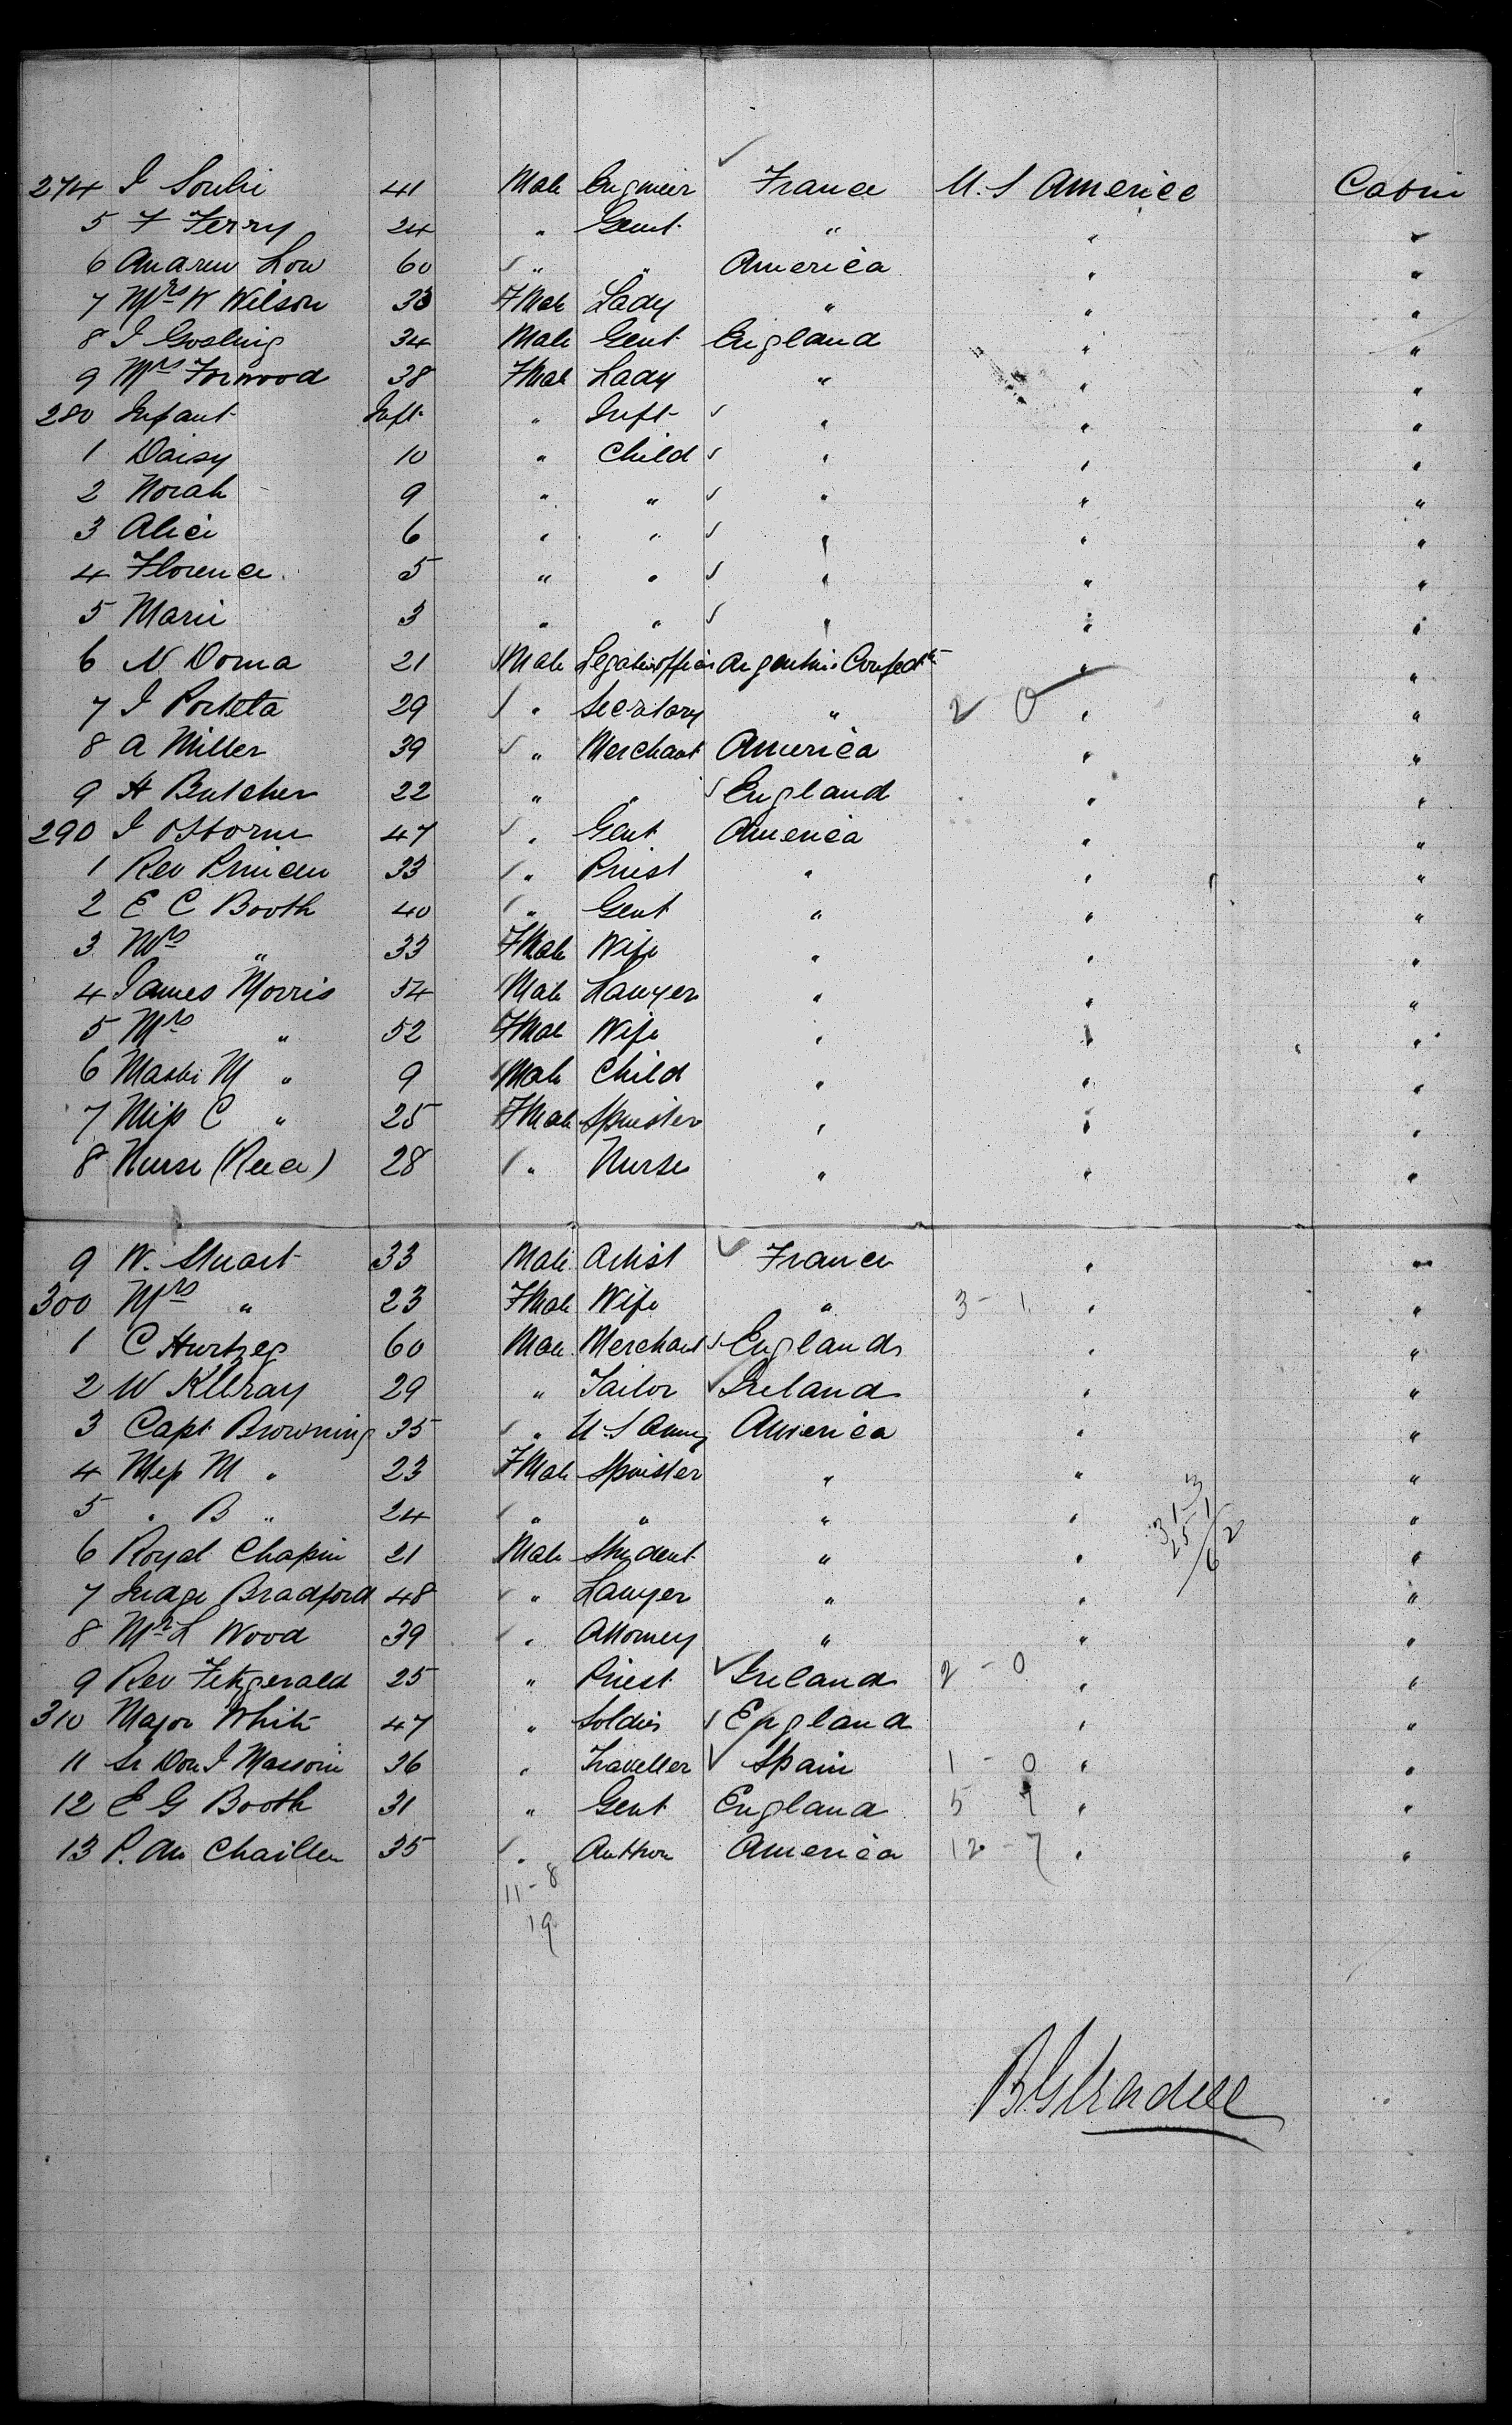 274 I Soulié 41 Male Engineer France U.S America Cabin
5 F Ferry 24 " Gent " " "
6 Andrew Low 60 " " America " "
7 Mrs W Wilson 33 FMale Lady " " "
8 I Gosling 34 Male Gent England " "
9 Mrs Forwood 38 FMale Lady " " "
280 Infant Inft " Inft " " "
1 Daisy 10 " Child " " "
2 Norah 9 " " " " "
3 Alice 6 " " " " "
4 Florence 5 " " " " "
5 Marie 3 " " " " "
6 N Doma 21 Male Argentine Confedtn " "
7 I Porteta 29 " Secretary " 2 0 " "
8 A Miller 39 " Merchant America " "
9 H Butcher 22 " " England " "
290 I Osborne 47 " Gent America " "
1 Rev Princen 33 " Priest " " "
2 E C Booth 40 " Gent " " "
3 Mrs " 33 FMale Wife " " "
4 James Morris 54 Male Lawyer " " "
5 Mrs " 52 FMale Wife " " "
6 M " 9 Male Child " " "
7 Miss C " 25 FMale Spinster " " "
8 Nurse (Rece) 28 " Nurse " " "
9 W. Stuart 33 Male Artist France " "
300 Mrs " 23 FMale Wife " 3 - 1 " "
1 C Hurtzeg 60 Male Merchant England " "
2 W 29 " Tailor Ireland " "
3 Capt Browning 35 " U.S Army America " "
4 Miss M " 23 FMale Spinster " " "
5 " B " 24 " " " " "
6 Royal Chapin 21 Male Student " " "
7 Judge Bradford 48 " Lawyer " " "
8 Mr L Wood 39 " Attorney " " "
9 Rev Fitzgerald 25 " Priest Ireland 2 - 0 " "
310 Major White 47 " Soldier England " "
11 Sr Don I 36 " Traveller Spain 1 - 0 " "
12 E G Booth 31 " Gent England 5 " "
13 P. du Chaillu 35 " Author America 12 - 7 " "
31-3
25-1
6/2
11 - 8
19